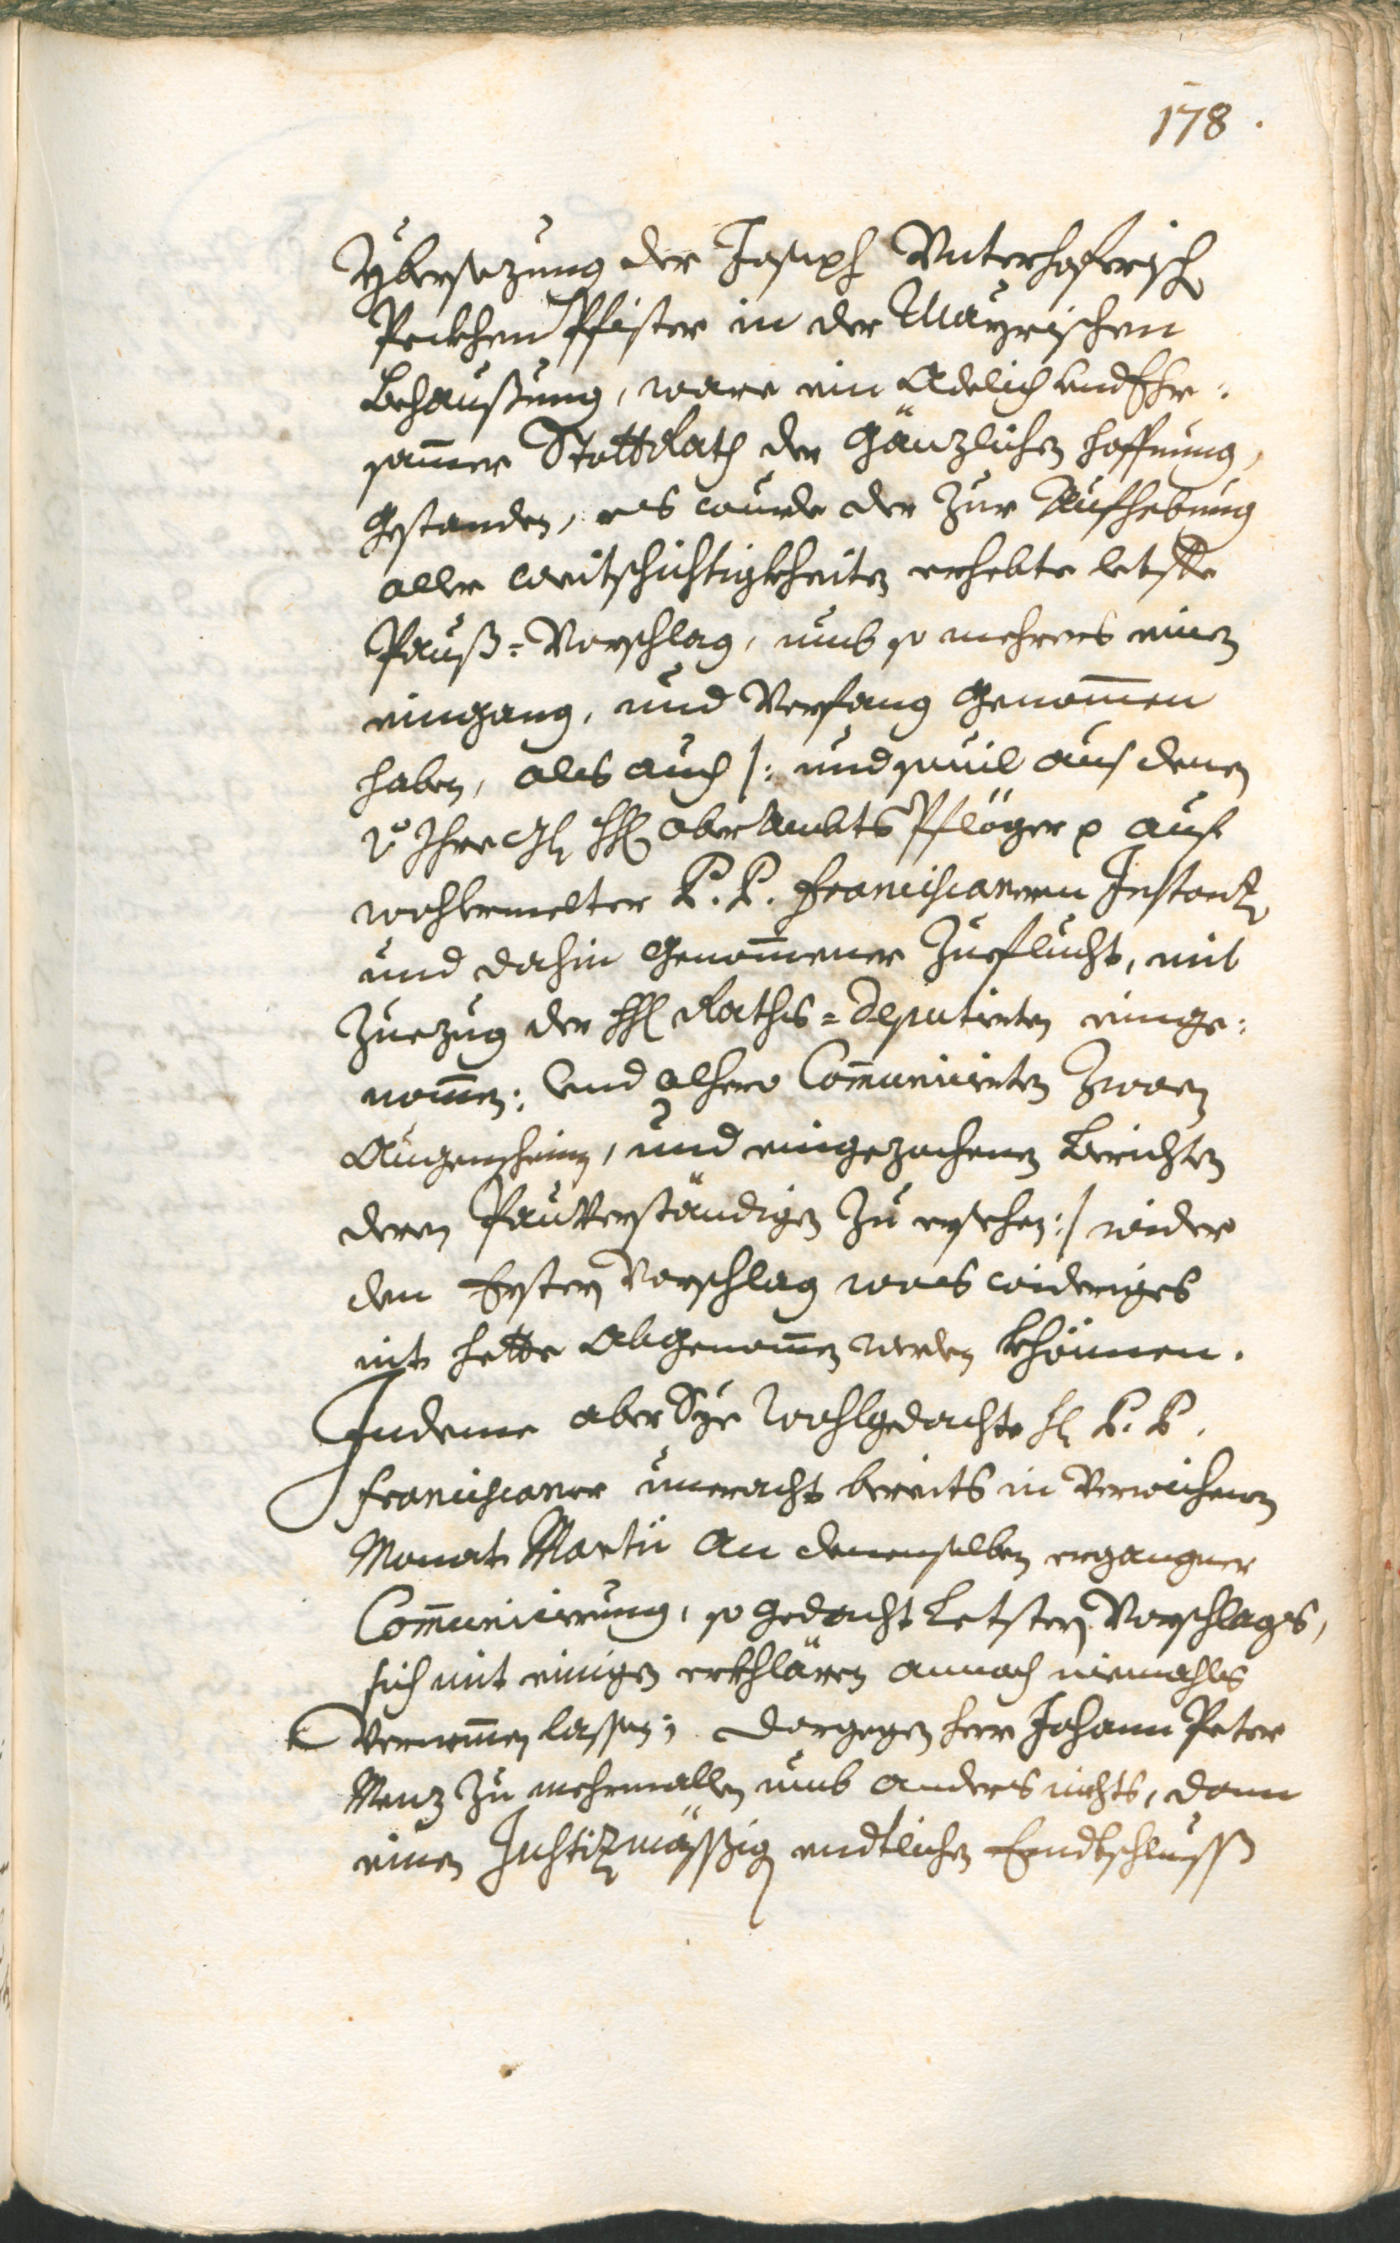 178.
Ybersezung der Joseph Unterhoferisch
Peckhen Pfister in der Mayrischen
Behaußung, ware ein Adelich und Ehr:
samer StattRath der gänzlichen hoffnung,
gestanden, es wurde der zur Aufhebung
aller weitschichtigkheiten erhebte letste
Pauß=Vorschlag, umb so mehrers einen
eingang, und Verfang genommen
haben, als auch /: und souil aus denen
v Ihro Gl HH Ober Ambts Pflöger p auf
wohlermelter P. P. Franciscanern Instantz
und dahin genommener Zueflucht, mit
Zuezug der HH Raths=Deputirten einge:
nommen: und alhero Communicirten zwaen
Augenschein, und eingezochenen Berichten
deren Pauverständigen zu ersehen :/ wider
den Ersten Vorschlag was wideriges
nit hette abgenommen werden khönnen.
Indeme aber Sye wohlgedachte H P. P.
Franciscaner uneracht bereits in verwichenen
Monat Martii an denenselben ergangner
Communicierung, so gedacht letsten Vorschlags,
sich mit einigen erkhlären annoch niemahls
vernemmen lassen; dargegen herr Johann Peter
Menz zu mehrmallen umb anders nichts, dann
einen Justizmässig endtlichen Endtschluss